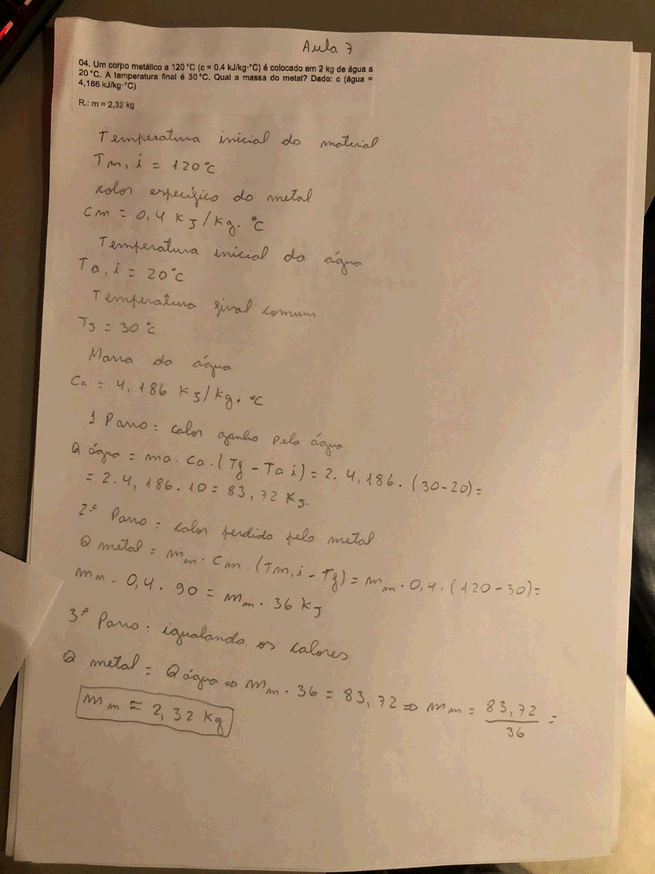 Aula 7
04. Um corpo metálico a 120 °C (c = 0.4 kJ/kg·°C) é colocado em 2 kg de água a
20 °C. A temperatura final é 30 °C. Qual a massa do metal? Dado: c (água =
4,186 kJ/kg·°C)
R.: m = 2,32 kg
Temperatura inicial do material
Tm, i = 120°C
calor específico do metal
cm = 0,4 KJ/Kg. °C
Temperatura inicial da água
Ta, i = 20°C
Temperatura final comum
Tf = 30°C
Massa da água
Ca = 4,186 KJ/kg. °C
1 Passo: calor ganho pela água
Q água = ma. Ca. (Tf - Ta i) = 2. 4,186. (30-20) =
= 2. 4,186. 10 = 83,72 KJ.
2º Passo: calor perdido pelo metal
Q metal = mm . Cm. (Tm, i - Tf) = mm . 0,4. (120-30) =
mm . 0,4. 90 = mm . 36 KJ
3º Passo: igualando os calores
Q metal = Q água ⇒ mm . 36 = 83,72 ⇒ mm = 83,72/36 =
mm ≈ 2,32 kg